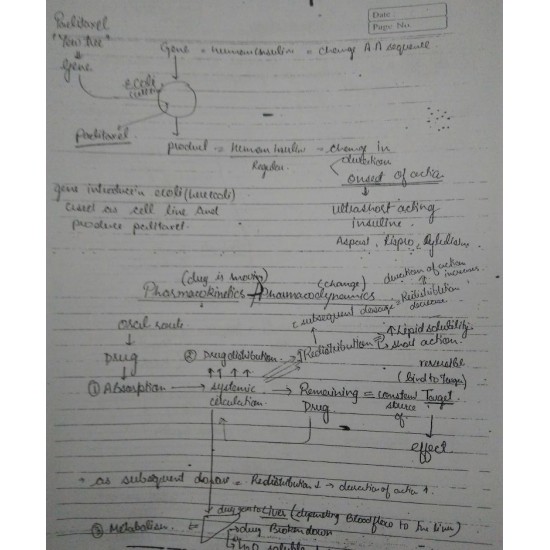 Date
Page No.
Paclitaxel
"Yew tree"
Gene
Gene = human insulin = change AA sequence
E.Coli
Paclitaxel
product = Human Insulin = change in
Regular
duration
onset of action
gene introduce in ecoli (here coli)
used as cell line and
produce paclitaxel
ultrashort acting
insuline
Aspart, Lispro,
(drug is moving)
(change)
duration of action
increases.
Pharmacokinetics Pharmacodynamics
subsequent dosage = Redistribution
decrease
oral route
Drug
② Drug distribution → Redistribution
↑ Lipid solubility
short action.
reversible
(bind to Target)
① Absorption → systemic → Remaining = constant Target
Drug
source
of
effect
→ as subsequent dosage = Redistribution ↓ → duration of action ↑.
③ Metabolism
drug into liver (depending Blood flow to the liver)
→ drug Broken down
H2O soluble